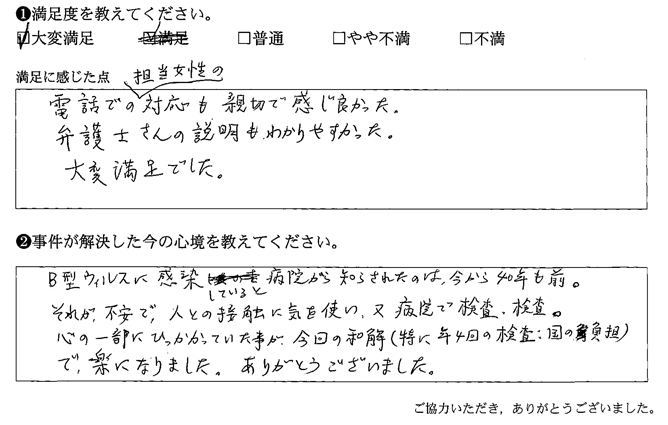 ❶満足度を教えてください。
☑大変満足 ☑満足 □普通 □やや不満 □不満
満足に感じた点 担当女性の
電話での対応も 親切で感じ良かった。
弁護士さんの説明も、わかりやすかった。
大変満足でした。
❷事件が解決した今の心境を教えてください。
B型ウィルスに感染していると病院から知らされたのは、今から40年も前。
それが、不安で、人との接触に気を使い、又病院で検査、検査。
心の一部にひっかかっていた事が、今回の和解(特に年4回の検査:国の負担)
で、楽になりました。ありがとうございました。
ご協力いただき，ありがとうございました。